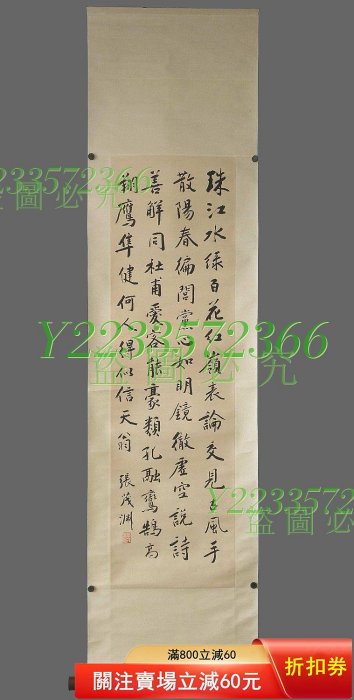 珠江水綠百花紅嶺表論交見古風手
散陽春徧閭黨心如明鏡徹虛空說詩
善解同杜甫愛客能豪類孔融鸞鵠高
翔鷹隼健何人得似信天翁 張茂淵
2233572366
盜圖必究
Y2233572366
盜圖必究
Y2233572
盜圖必
滿800立減60
關注賣場立減60元
折扣券